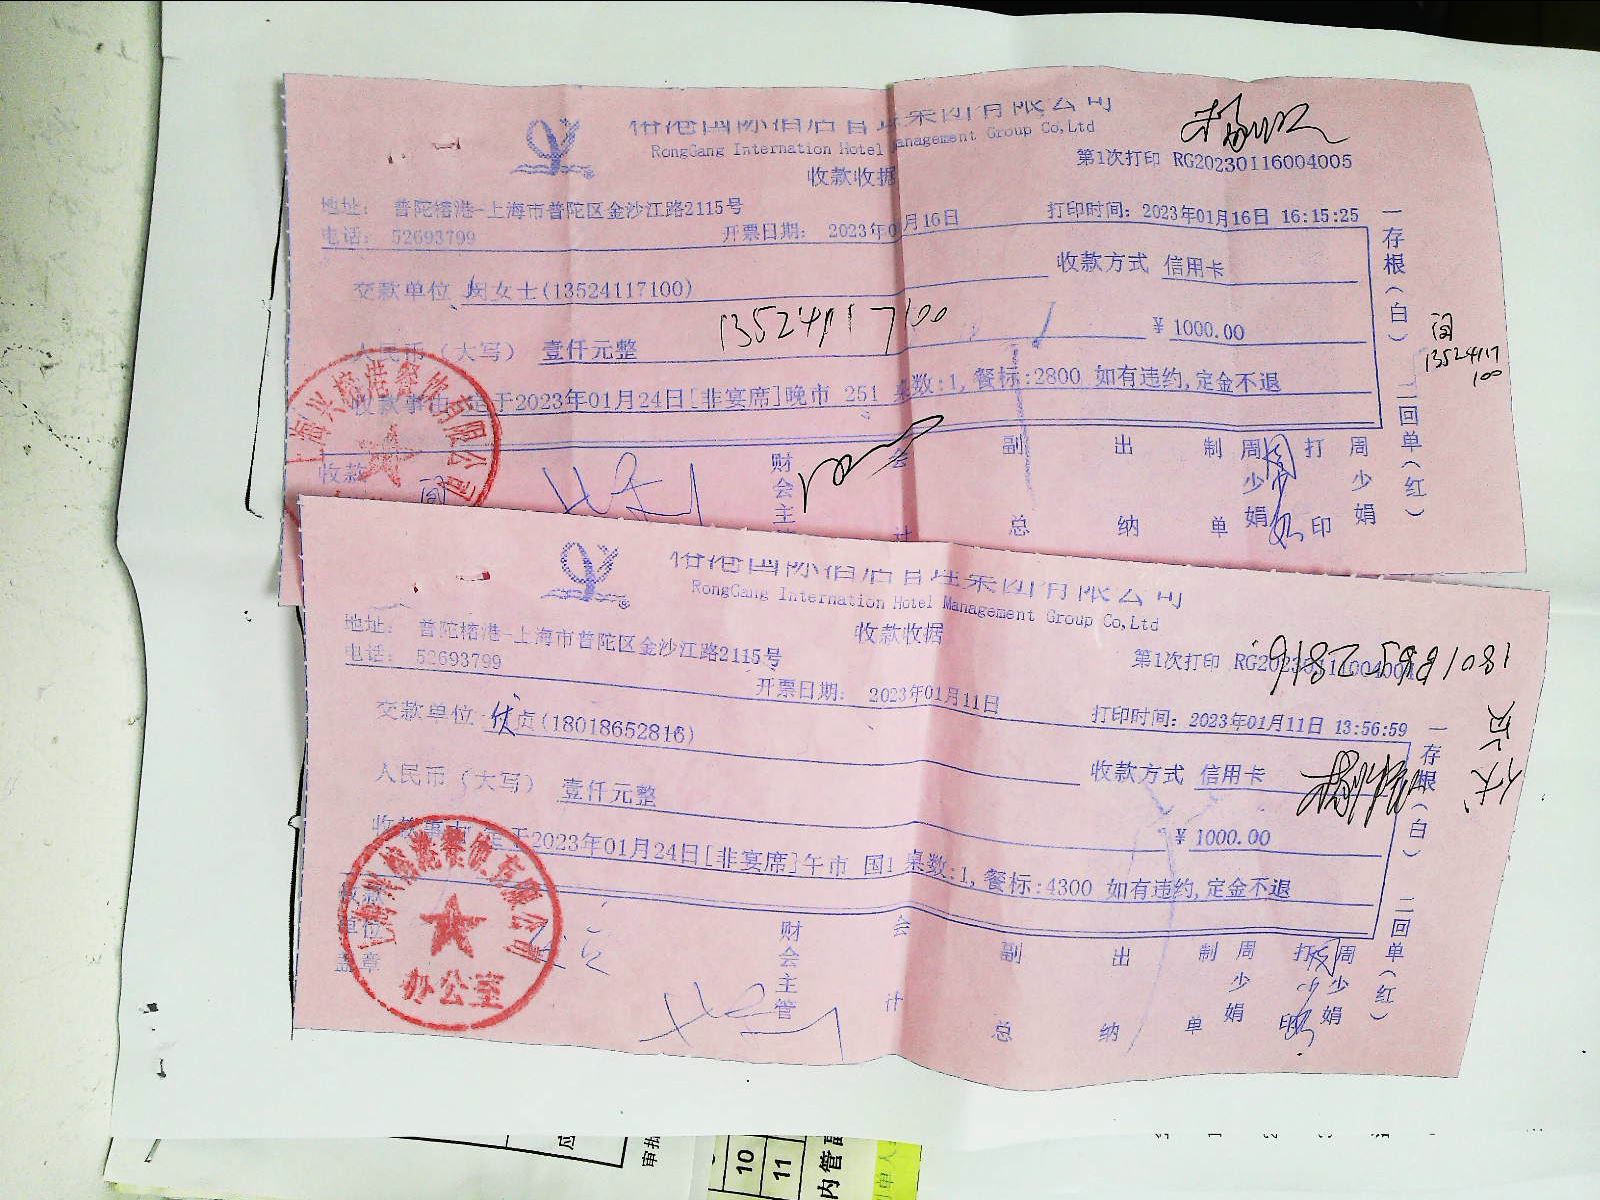 榕港国际酒店管理集团有限公司
RongGang Internation Hotel Management Group Co,Ltd
收款收据
第1次打印 RG20230116004005
地址： 普陀榕港-上海市普陀区金沙江路2115号
电话： 52693799
开票日期： 2023年01月16日
打印时间：2023年01月16日 16:15:25
交款单位 闵女士(13524117100)
收款方式 信用卡
人民币（大写） 壹仟元整
13524117100
¥ 1000.00
收款事由 定于2023年01月24日[非宴席]晚市 251 桌数:1,餐标:2800 如有违约,定金不退
收款
财会主
会计
副总
出纳
制单
周少娟
打印
周少娟
一存根（白） 二回单（红）
13524117
100
上海兴榕港餐饮有限公司
榕港国际酒店管理集团有限公司
RongGang Internation Hotel Management Group Co,Ltd
收款收据
地址： 普陀榕港-上海市普陀区金沙江路2115号
电话： 52693799
第1次打印
18018652816
开票日期： 2023年01月11日
打印时间：2023年01月11日 13:56:59
交款单位 伏贞(18018652816)
收款方式 信用卡
人民币（大写） 壹仟元整
¥ 1000.00
收款事由 定于2023年01月24日[非宴席]午市 国1 桌数:1,餐标:4300 如有违约,定金不退
收款单位盖章
财会主管
会计
副总
出纳
制单
周少娟
打印
周少娟
一存根（白） 二回单（红）
上海兴榕港餐饮有限公司
办公室
审批
10
11
内管
单人